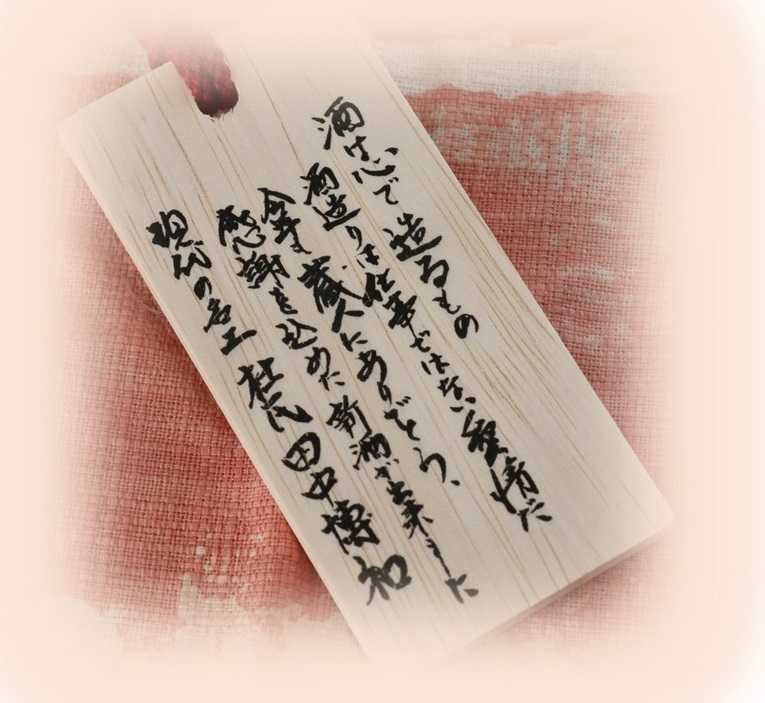 酒は心で造るもの
酒造りは仕事ではない愛情だ
今年も蔵人にありがとう、
感謝を込めた新酒が出来ました
現代の名工 杜氏 田中博和